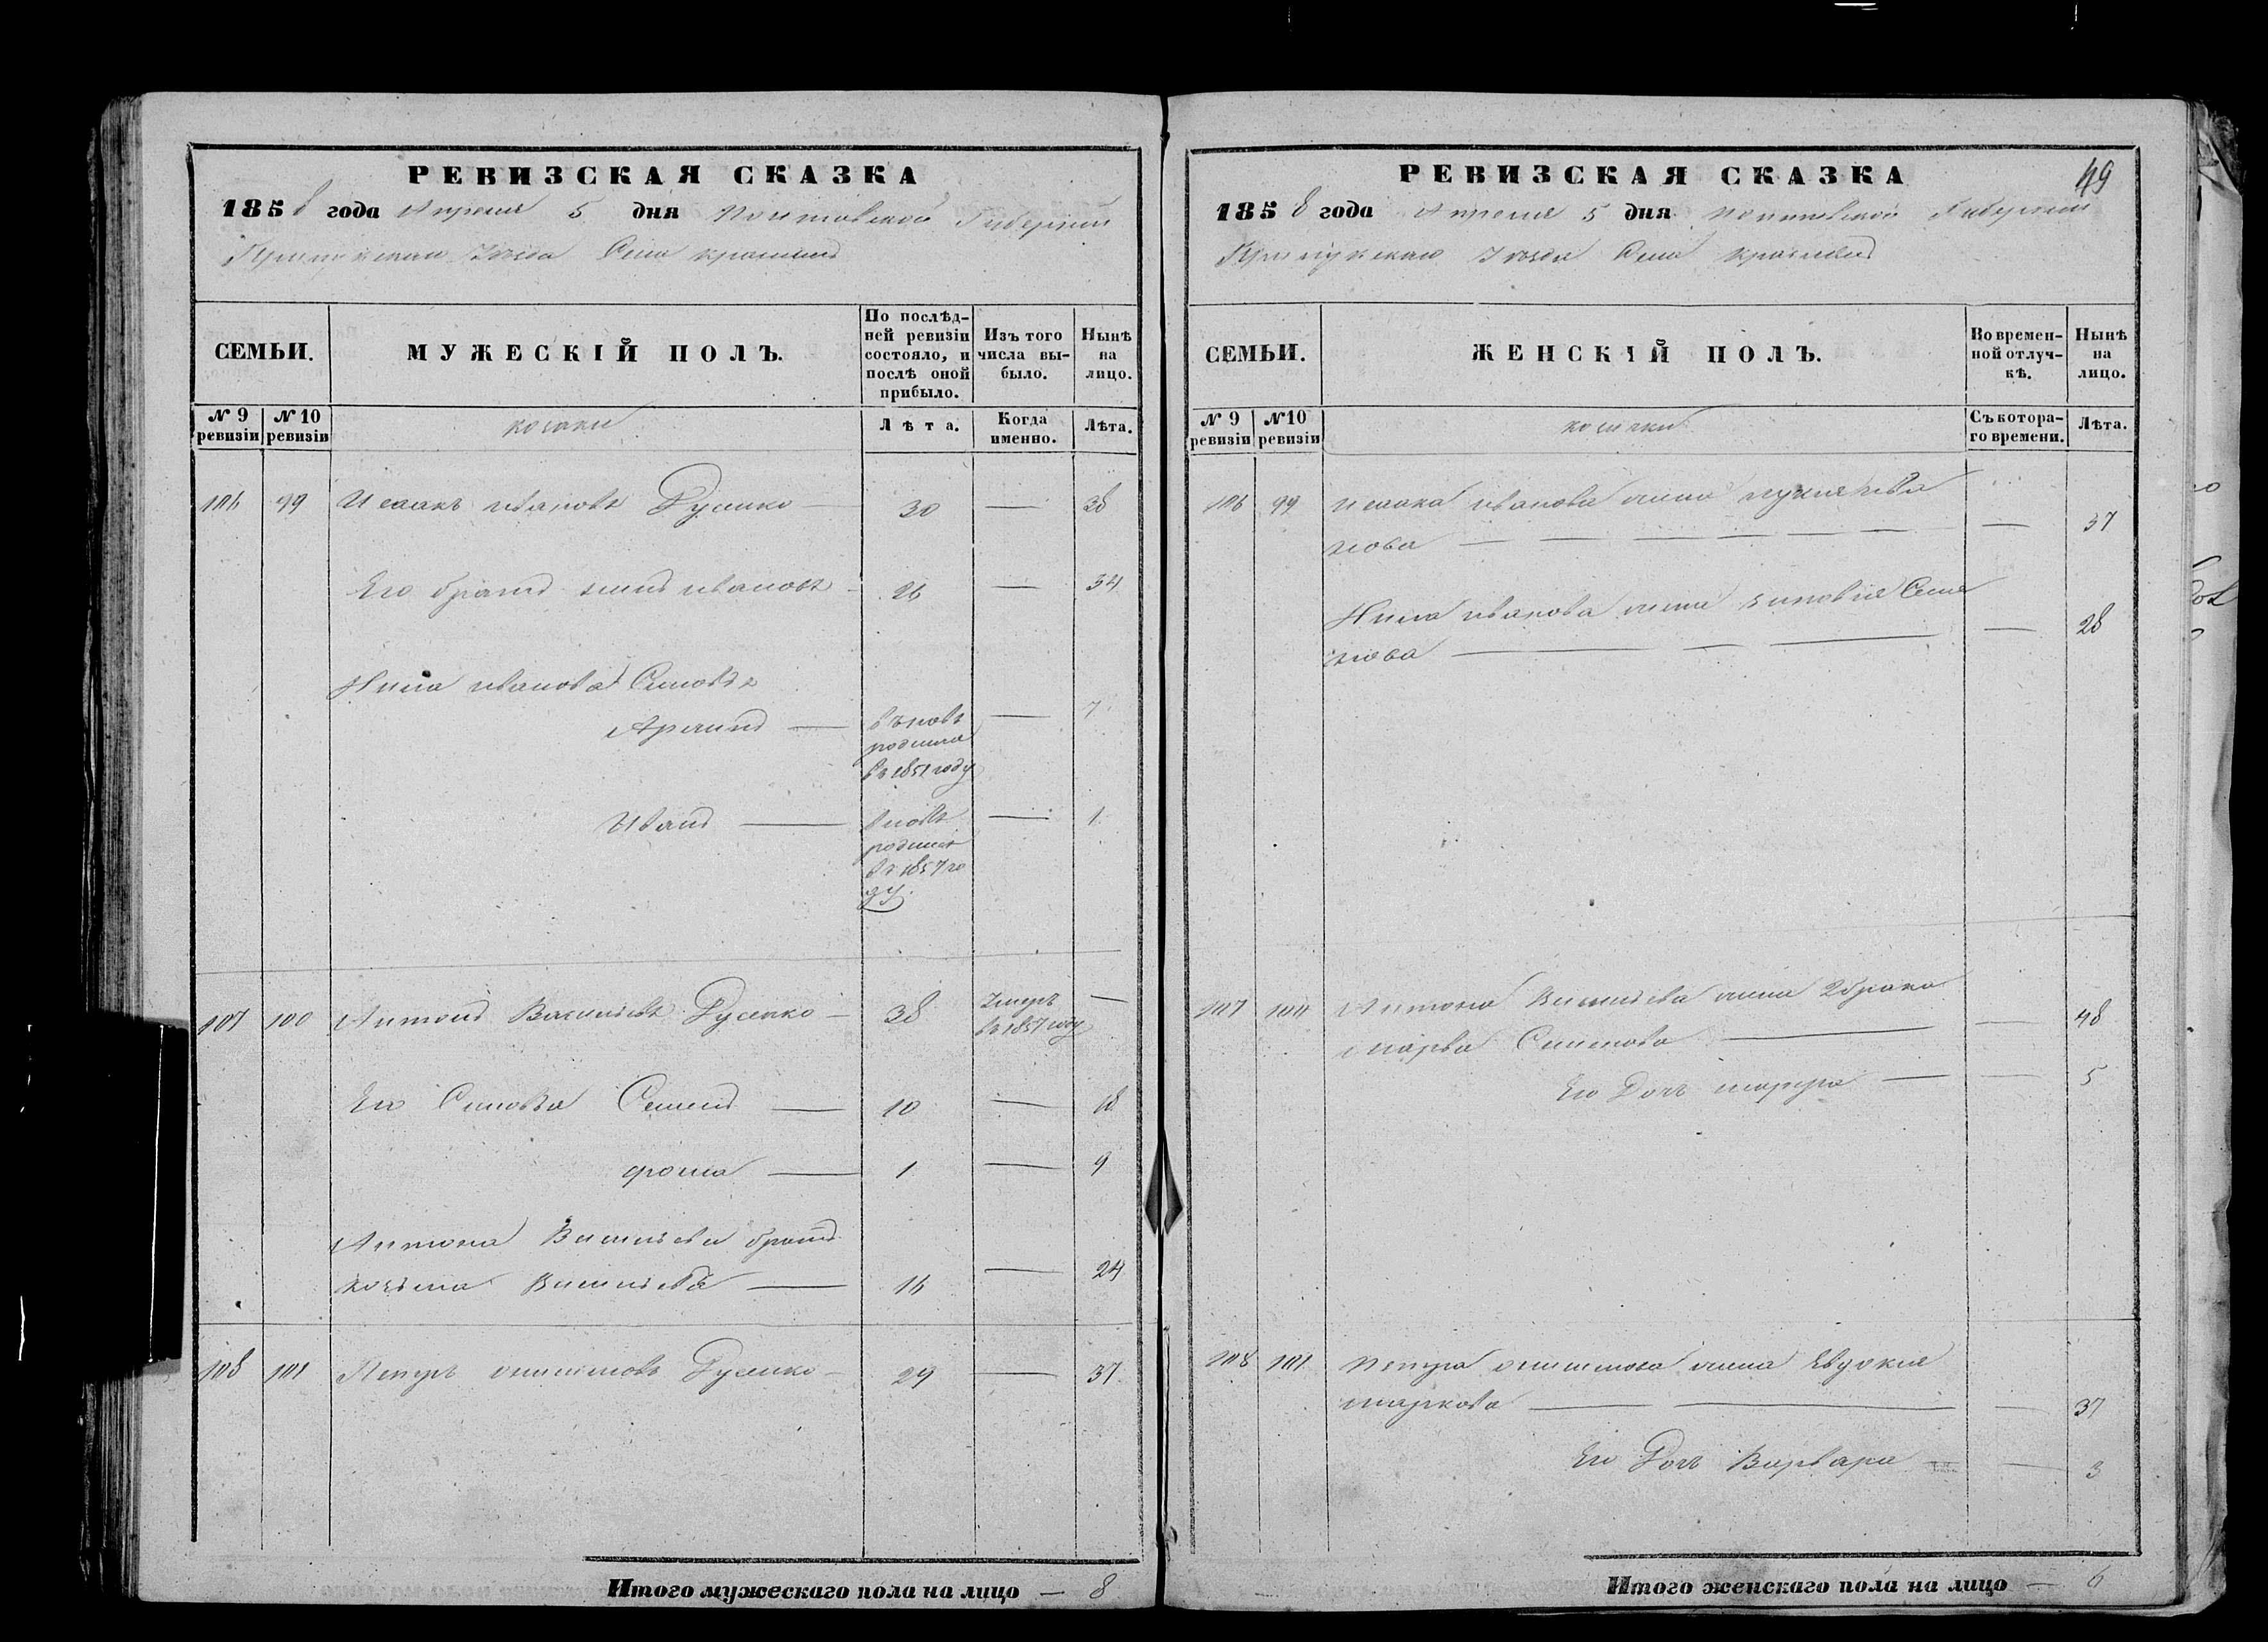 РЕВИЗСКАЯ СКАЗКА
1858 года Апреля 5 дня Полтавской Губернии
Прилукскаго Уезда Села
СЕМЬИ.
МУЖЕСКІЙ ПОЛЪ.
По послѣд-
ней ревизіи
состояло, и
послѣ оной
прибыло.
Изъ того
числа вы-
было.
Нынѣ
на
лицо.
№ 9
ревизіи
№ 10
ревизіи
козаки
Лѣта.
Когда
именно.
Лѣта.
106 99 Исаакъ Ивановъ Гусенко — 30 — 38
Его братъ Ивановъ — 26 — 34
Ивановъ Сыновья
— въновь — 7
родился
въ 1851 году
Иванъ — вновь — 1
родился
въ 1857 го
ду.
107 100 Антонъ Васильевъ Гусенко — 38 Умеръ —
въ 1857 году
Его Сыновья Семенъ — 10 — 18
Фома — 1 — 9
Антона Васильева братъ
Козьма Васильевъ — 16 — 24
108 101 Петръ Гусенко — 29 — 37
Итого мужескаго пола на лицо — 8
РЕВИЗСКАЯ СКАЗКА
49
1858 года Апреля 5 дня Полтавской Губернии
Прилукскаго Уезда Села
СЕМЬИ.
ЖЕНСКІЙ ПОЛЪ.
Во времен-
ной отлуч-
кѣ.
Нынѣ
на
лицо.
№ 9
ревизіи
№ 10
ревизіи
козачки
Съ котора-
го времени.
Лѣта.
106 99 Исаака Иванова жена
— 37
Иванова жена Зиновия Семе
нова — 28
107 100 Антона Васильева жена 2 брака
Марва — 48
Его Дочь — 5
108 101 Петра жена Евдокия
Маркова — 37
Его Дочь Варвара — 3
Итого женскаго пола на лицо — 6